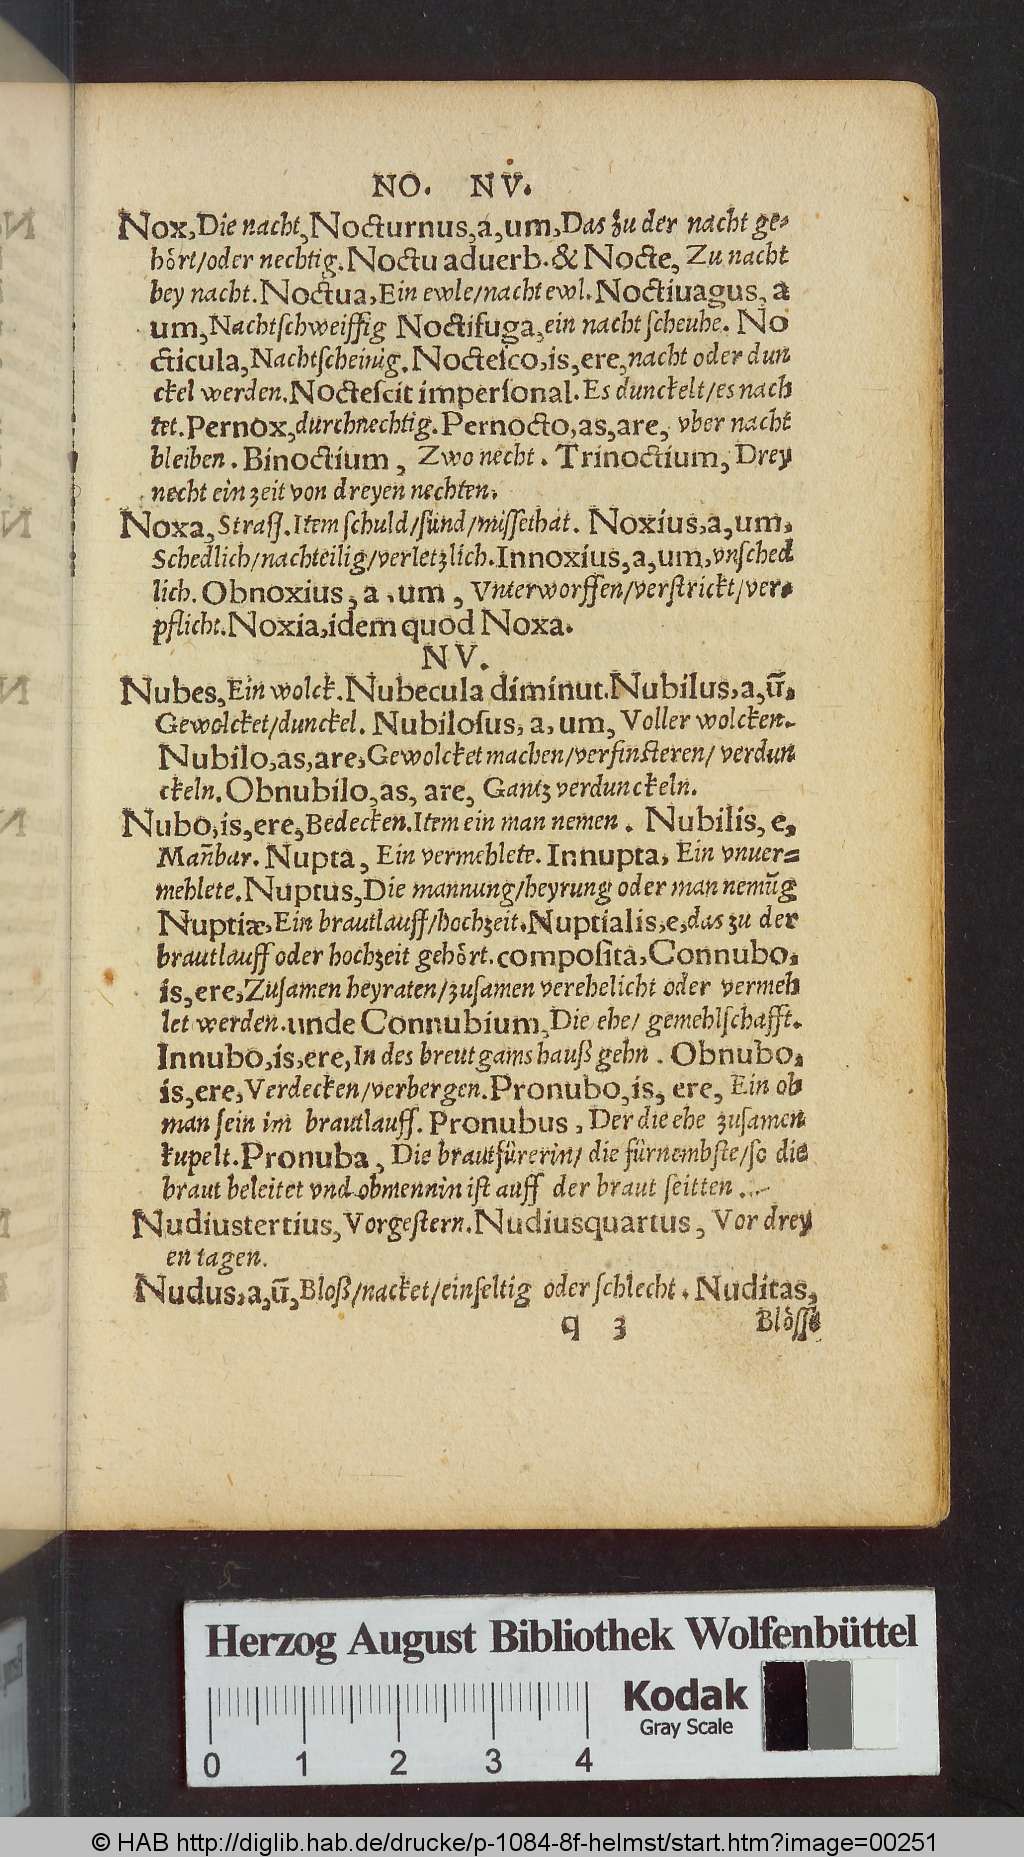 NO. NV.
Nox, Die nacht, Nocturnus, a, um, Das zu der nacht ge-
hört/oder nechtig. Noctu aduerb. & Nocte, Zu nacht
bey nacht. Noctua, Ein ewle/nacht ewl. Noctiuagus, a
um, Nachtschweiffig Noctifuga, ein nacht scheuhe. No
cticula, Nachtscheinig. Noctesco, is, ere, nacht oder dun
ckel werden. Noctescit impersonal. Es dunckelt/es nach
tet. Pernox, durchnechtig. Pernocto, as, are, vber nacht
bleiben. Binoctium, Zwo necht. Trinoctium, Drey
necht ein zeit von dreyen nechten.
Noxa, Straff. Item schuld/sünd/missethat. Noxius, a, um,
Schedlich/nachteilig/verletzlich. Innoxius, a, um, vnsched
lich. Obnoxius, a, um, Vnterworffen/verstrickt/ver-
pflicht. Noxia, idem quod Noxa.
NV.
Nubes, Ein wolck. Nubecula diminut. Nubilus, a, ũ,
Gewolcket/dunckel. Nubilosus, a, um, Voller wolcken.
Nubilo, as, are, Gewolcket machen/verfinsteren/ verdun
ckeln. Obnubilo, as, are, Gantz verdunckeln.
Nubo, is, ere, Bedecken. Item ein man nemen. Nubilis, e,
Mañbar. Nupta, Ein vermehlete. Innupta, Ein vnuer-
mehlete. Nuptus, Die mannung/heyrung oder man nemũg
Nuptiæ, Ein brautlauff/hochzeit. Nuptialis, e, das zu der
brautlauff oder hochzeit gehört. composita, Connubo,
is, ere, Zusamen heyraten/zusamen verehelicht oder vermeh
let werden. unde Connubium, Die ehe/ gemehlschafft.
Innubo, is, ere, In des breutgams hauß gehn. Obnubo,
is, ere, Verdecken/verbergen. Pronubo, is, ere, Ein ob
man sein im brautlauff. Pronubus, Der die ehe zusamen
kupelt. Pronuba, Die brautfürerin/ die fürnembste/so die
braut beleitet vnd obmennin ist auff der braut seitten.
Nudiustertius, Vorgestern. Nudiusquartus, Vor drey
en tagen.
Nudus, a, ũ, Bloß/nacket/einfeltig oder schlecht. Nuditas,
q 3 Blösse
Herzog August Bibliothek Wolfenbüttel
Kodak
Gray Scale
0 1 2 3 4
© HAB http://diglib.hab.de/drucke/p-1084-8f-helmst/start.htm?image=00251